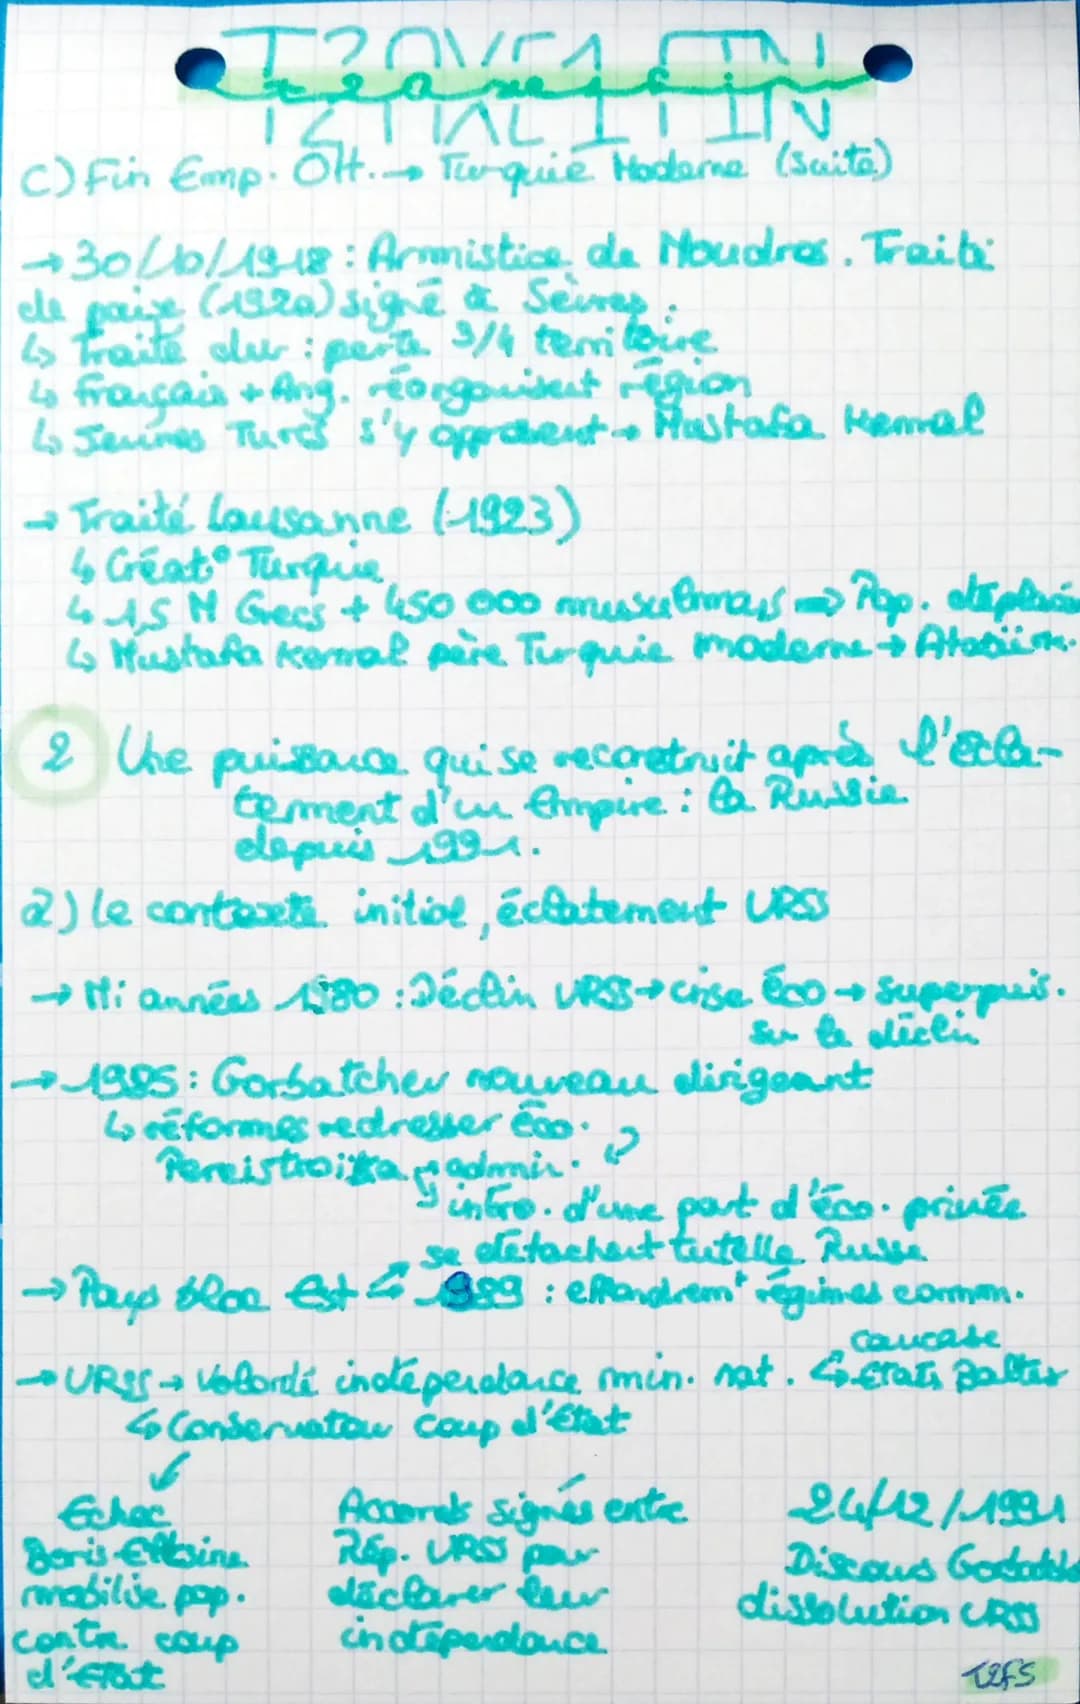 C) Fin Emp. Ott. → Turquie Moderne (suite)
→ 30/10/1918 : Armistice de Moudros. Traité
de paix (1920) signé à Sèvres.
↳ Traité dur : perte 3/4 territoire
↳ Français + Ang. réorganisent région
↳ Jeunes Turcs s'y opposent → Mustafa Kemal
→ Traité Lausanne (1923)
↳ Créat° Turquie
↳ 1,5 M Grecs + 450 000 musulmans ⇒ Pop.
↳ Mustafa Kemal père Turquie moderne →
2 Une puissance qui se reconstruit après l'écla-
tement d'un Empire : la Russie
depuis 1991.
a) Le contexte initial, éclatement URSS
→ Mi années 1980 : Déclin URSS → crise éco → Superpuis.
sur le déclin
→ 1985 : Gorbatchev nouveau dirigeant
↳ réformes redresser éco.
admin.
intro. d'une part d'éco. privée
se détachent tutelle Russe
→ Pays bloc Est ↳ 1989 : effondrem^t régimes comm.
Caucase
→ URSS → Volonté indépendance min. nat. ↳ États Baltes
↳ Conservateur coup d'État
Échec
Boris Eltsine
mobilise pop.
contre coup
d'État
Accords signés entre
Rép. URSS pour
déclarer leur
indépendance
24/12/1991
Discours
dissolution URSS